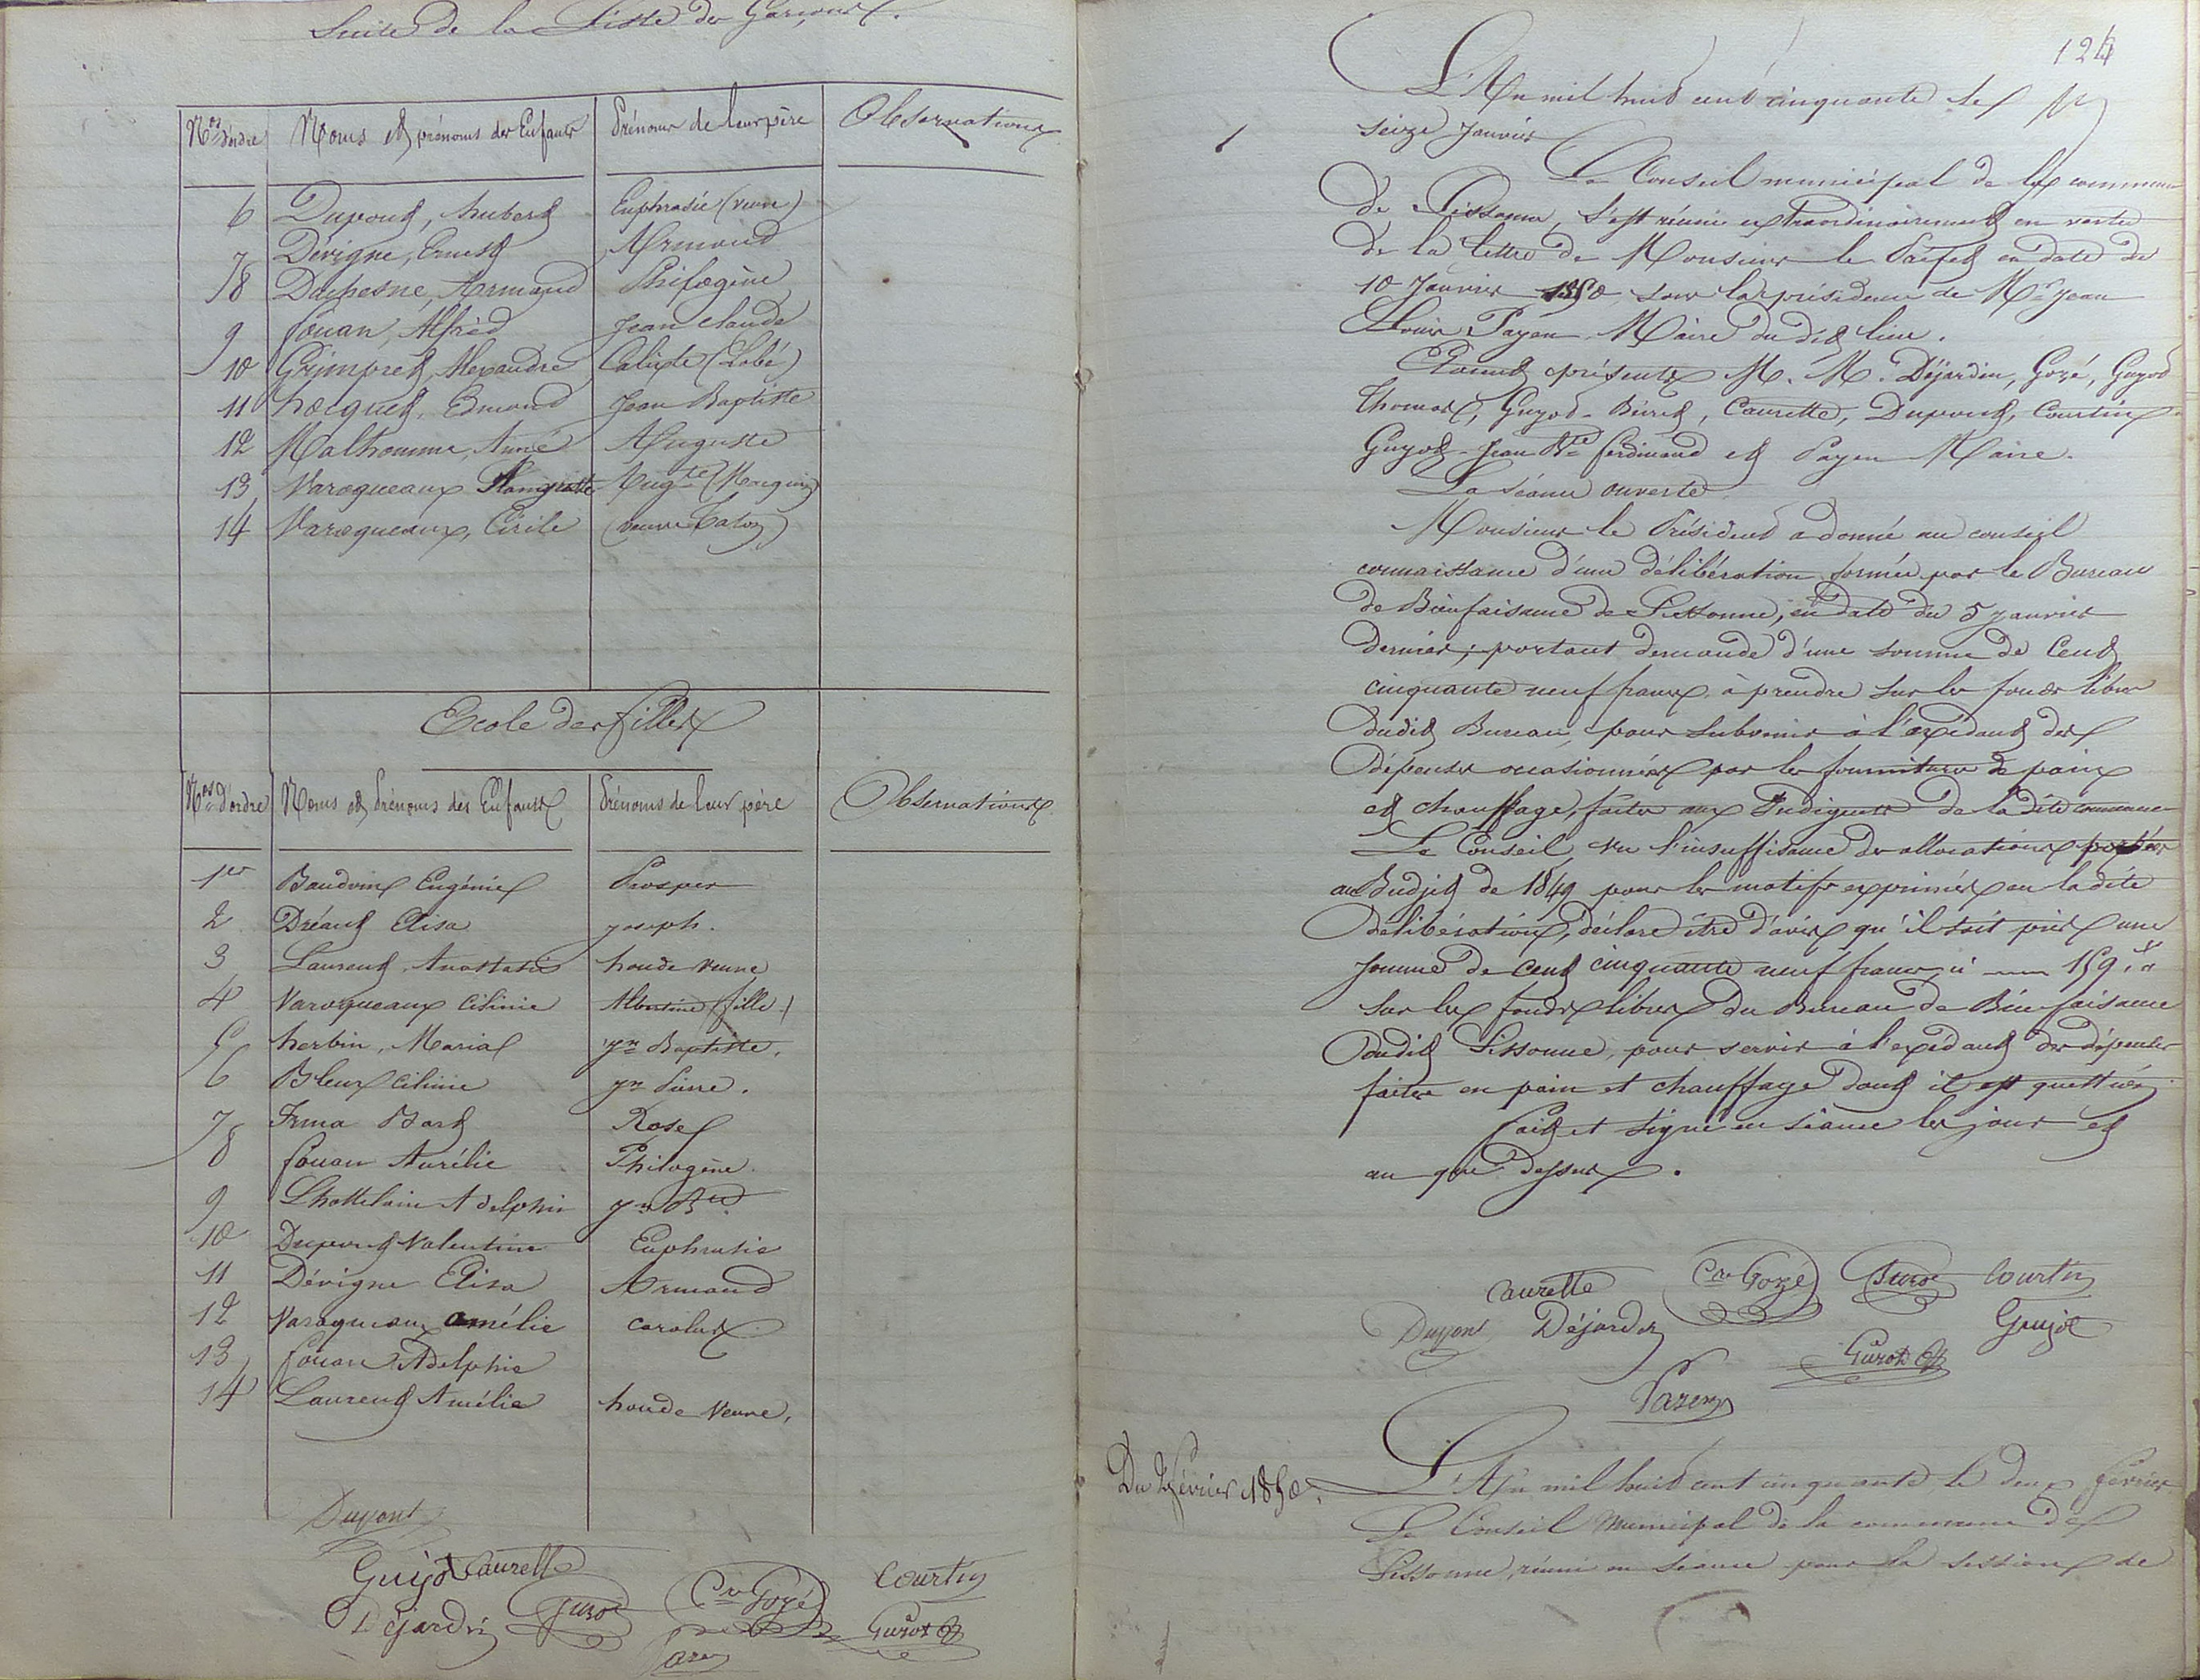 Suite de la Liste des Garçons.
Nos d'ordre Noms et prénoms des Enfants Prénoms de leur père Observations
6 Dupont, hubert Euphrasie (veuve)
7 Dévigne, Ernest Armand
8 Duchesne, Armand Philogène
9 fouan, Alfred Jean Claude
10 Grimpret, Alexandre Calixte (Labé)
11 hocquet, Edmond Jean Baptiste
12 Malhomme, Aimé Auguste
13 Varoqueaux Augte
14 Varoqueaux, Cirile (veuve
Ecole des filles
Nos d'ordre Noms et Prénoms des Enfants Prénoms de leur père Observations
1er Baudoin Eugénie Prosper
2 Dréant Elisa Joseph.
3 Laurent, Anastasie houde veuve
4 Varoqueaux Célinie Albertine (fille)
5 herbin, Maria Jn Baptiste.
6 Bleux Célinie Jn Pierre.
7 Irma Bart Rose
8 fouan Aurélie Philogène.
9 Lhottelain Adelphie Jn Bte
10 Dupont Valentine Euphrasie
11 Dévigne Elisa Armand
12 Varoqueaux amélie Carolus
13 fouan Adelphie
14 Laurent Amélie houde Veuve.
Dupont
Guyot Caurette Courtin
Déjardin Cre Gozé Guyot
124
L'An mil huit cent cinquante le
seize Janvier
Le Conseil municipal de la commune
de Sissonne, s'est réuni extraordinairement en vertu
de la lettre de Monsieur le Préfet en date du
10 Janvier 1850, sous la présidence de Mr Jean
Louis Payen Maire du dit lieu.
Etaient présents M. M. Déjardin, Gozé, Guyot
Thomas, Guyot-Biret, Caurette, Dupont, Courtin
Guyot-Jean Bte ferdinand et Payen Maire.
La séance ouverte
Monsieur le Président a donné au conseil
connaissance d'une délibération formée par le Bureau
de Bienfaisance de Sissonne, en date du 5 Janvier
dernier, portant demande d'une somme de Cent
cinquante neuf francs à prendre sur les fonds libres
dudit Bureau, pour subvenir à l'exédant des
dépenses occasionnées par les fournitures de pain
et chauffage, faites aux Indigents de la dite commune
Le Conseil, vu l'insuffisance des allocations portées
au Budjet de 1849, pour les motifs exprimés en la dite
délibération, déclare être d'avis qu'il soit pris une
somme de cent cinquante neuf francs, ci 159 f
sur les fonds libres du Bureau de Bienfaisance
dudit Sissonne, pour servir à l'exédant des dépenses
faites en pain et chauffage dont il est question.
fait et signé en séance les jour et
an que dessus.
Caurette Cre Gozé Courtin
Dupont Déjardin Guyot
Payen
Du 2 février 1850.
L'An mil huit cent cinquante le deux février
Le Conseil Municipal de la commune de
Sissonne, réuni en séance pour la session de